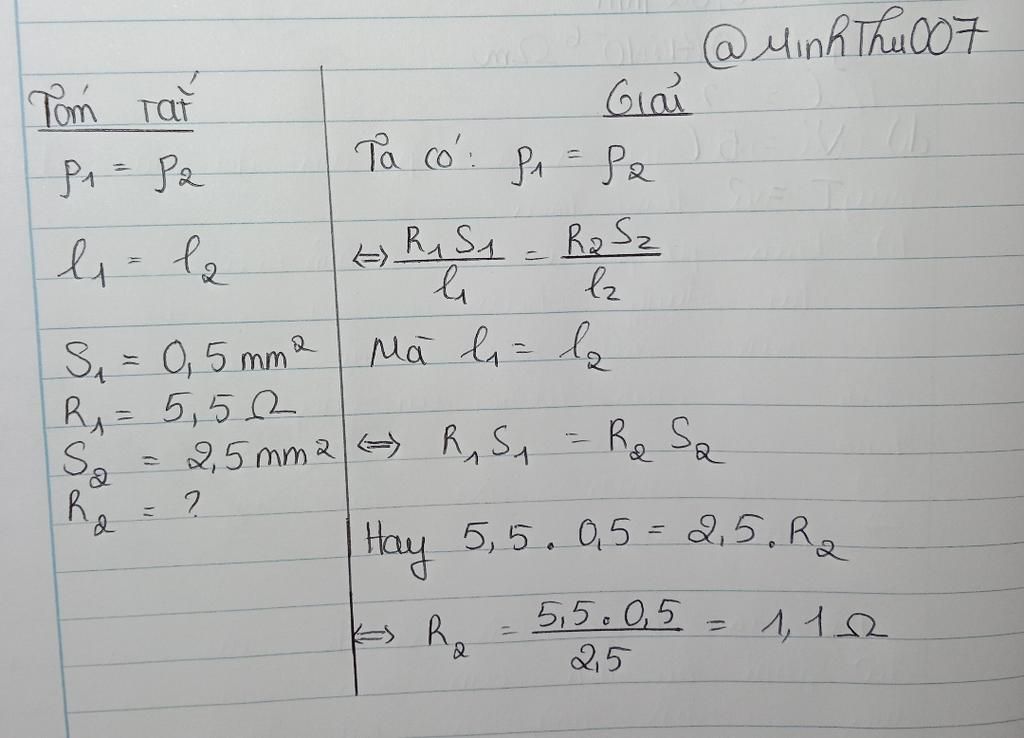 @MinhThu007
Tóm tắt
ρ1 = ρ2
l1 = l2
S1 = 0,5 mm²
R1 = 5,5 Ω
S2 = 2,5 mm²
R2 = ?
Giải
Ta có: ρ1 = ρ2
⇔ R1 S1 / l1 = R2 S2 / l2
Mà l1 = l2
⇔ R1 S1 = R2 S2
Hay 5,5 . 0,5 = 2,5 . R2
⇔ R2 = 5,5 . 0,5 / 2,5 = 1,1 Ω